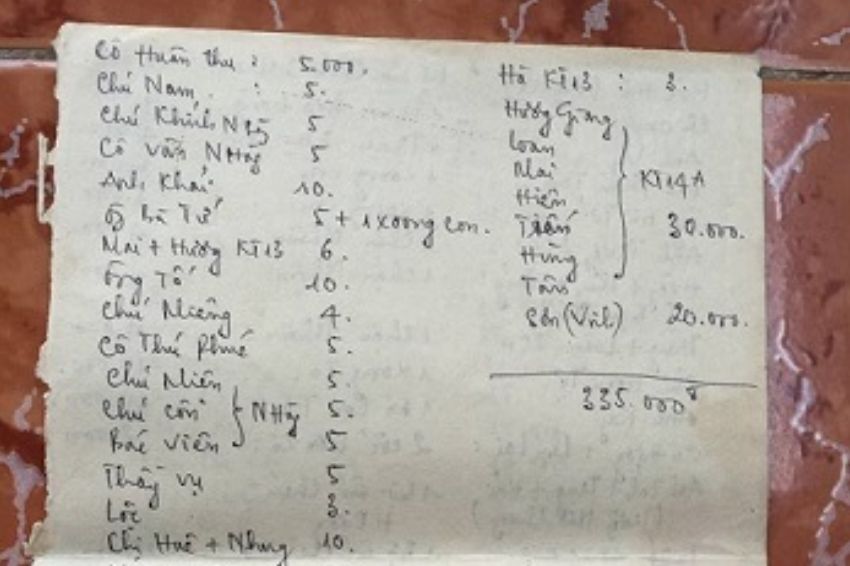 Cô Huân thu : 5.000.
Chú Nam. : 5.
Chú Khánh NHg 5
Cô Vân NHàg 5
Anh Khải 10.
Bà Tứ 5 + 1 xoong con.
Mai + Hương KT13 6.
Ông Tố 10.
Chú Miêng 4.
Cô Thu 5.
Chú Miên 5.
Chú Côn } NHàg 5.
Bác Viên 5
Thầy Vụ 5
Lộc 3.
Chị Huê + Nhung 10.
Hà KT13 : 3.
Hương Giang
Loan
Mai } KT14A
Hiền
Tiến 30.000.
Hùng
Tân
Sơn (Vinh) 20.000.
335.000đ